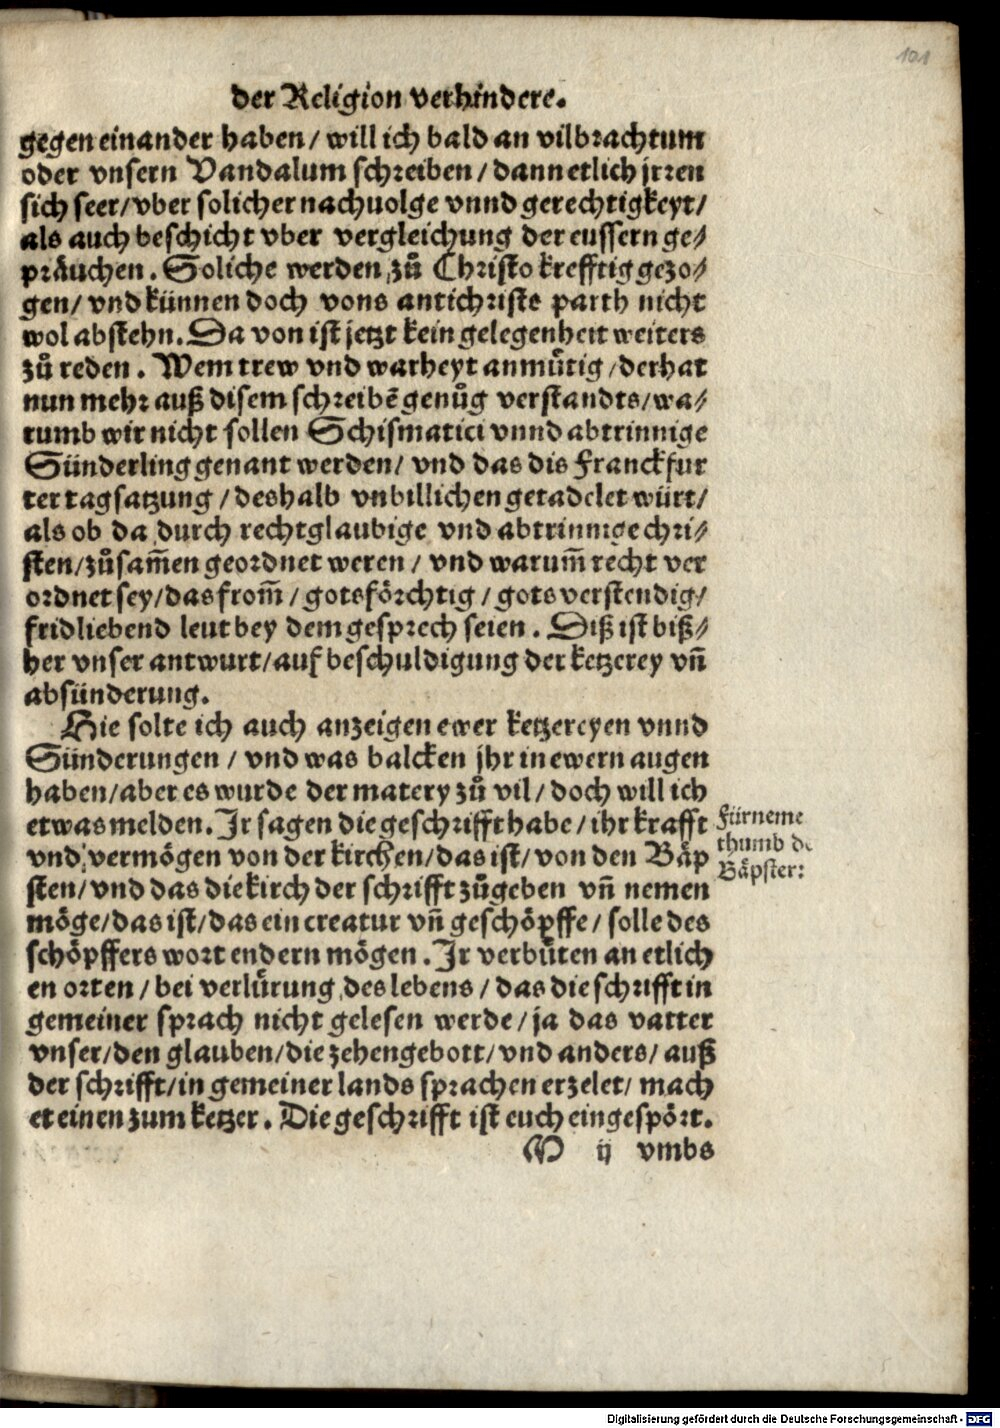 101
der Religion verhindere.
gegen einander haben / will ich bald an vilbrachtum
oder vnsern Vandalum schreiben / dann etlich jrren
sich seer / vber solicher nachuolge vnnd gerechtigkeyt /
als auch beschicht vber vergleichung der eussern ge⸗
präuchen . Soliche werden zů Christo krefftig gezo⸗
gen / vnd künnen doch vons antichriste parth nicht
wol abstehn. Da von ist jetzt kein gelegenheit weiters
zů reden . Wem trew vnd warheyt anmůtig / der hat
nun mehr auß disem schreibē genůg verstandts / wa⸗
rumb wir nicht sollen Schismatici vnnd abtrinnige
Sünderling genant werden / vnd das dis Franckfur
ter tagsatzung / deshalb vnbillichen getadelet würt /
als ob da durch rechtglaubige vnd abtrinnige chri⸗
sten / zůsam̄en geordnet weren / vnd warum̄ recht ver
ordnet sey / das from̄ / gotsförchtig / gots verstendig /
fridliebend leut bey dem gesprech seien . Diß ist biß⸗
her vnser antwurt / auf beschuldigung der ketzerey vn̄
absünderung.
Hie solte ich auch anzeigen ewer ketzereyen vnnd
Sünderungen / vnd was balcken jhr in ewern augen
haben / aber es wurde der matery zů vil / doch will ich
etwas melden . Jr sagen die geschrifft habe / ihr krafft
vnd vermögen von der kirchen / das ist / von den Bäp
sten / vnd das die kirch der schrifft zůgeben vn̄ nemen
möge / das ist / das ein creatur vn̄ geschöpffe / solle des
schöpffers wort endern mögen . Jr verbůten an etlich
en orten / bei verlůrung des lebens / das die schrifft in
gemeiner sprach nicht gelesen werde / ja das vatter
vnser / den glauben / die zehengebott / vnd anders / auß
der schrifft / in gemeiner lands sprachen erzelet / mach
et einen zum ketzer . Die geschrifft ist euch eingespört.
Fürneme
thumb de
Bäpster:
M ij vmbs
Digitalisierung gefördert durch die Deutsche Forschungsgemeinschaft - DFG